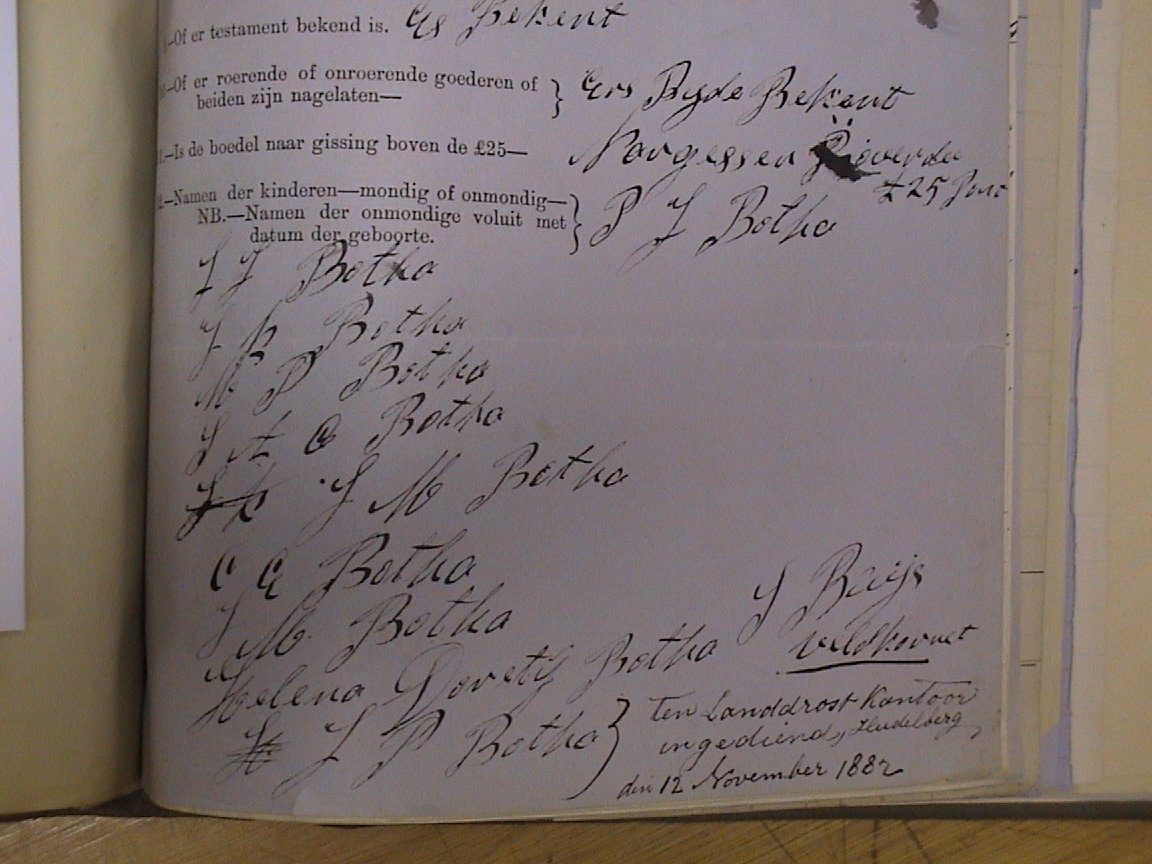 —Of er testament bekend is. Es Bekent
—Of er roerende of onroerende goederen of
beiden zijn nagelaten— Ers Byde Bekent
—Is de boedel naar gissing boven de £25—
£25
—Namen der kinderen—mondig of onmondig—
NB.—Namen der onmondige voluit met
datum der geboorte. P J Botha
J J Botha
J Botha
M P Botha
J A C Botha
J M Botha
C E Botha
J M Botha
Helena Dorety Botha
J P Botha
J Buijs
veldkornet
ten Landdrost Kantoor
ingediend, Heidelberg,
den 12 November 1882